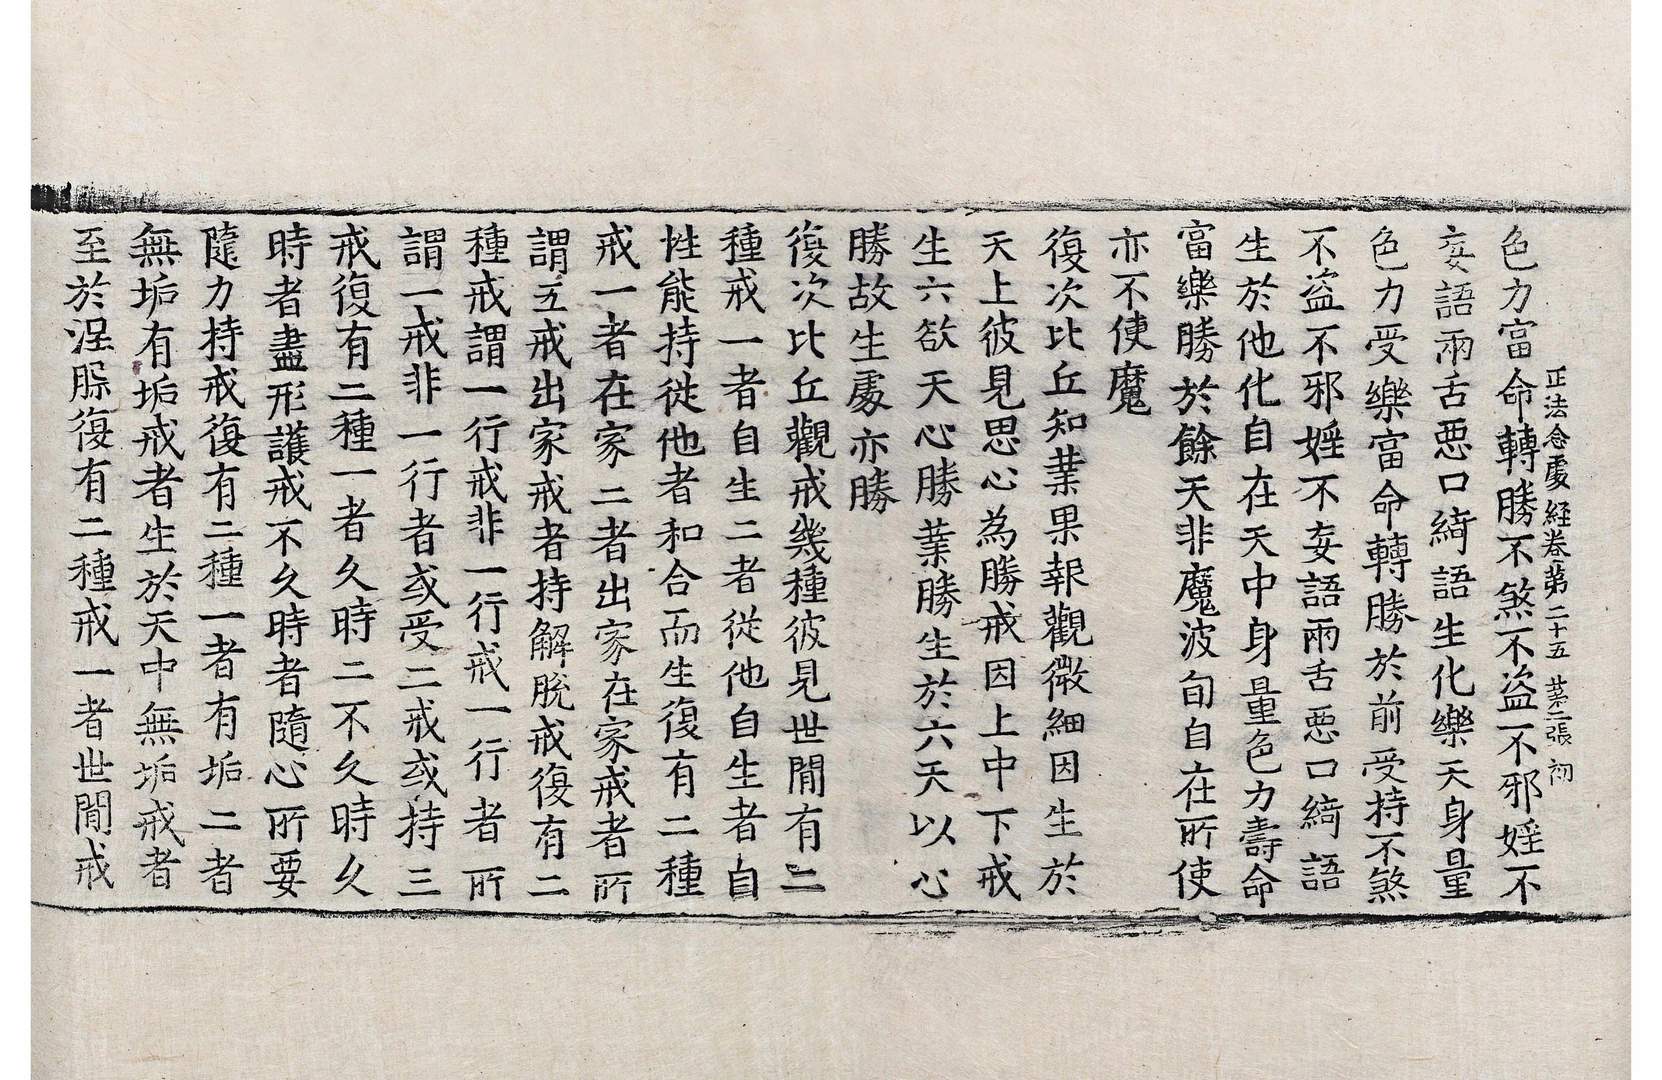 正法念處經卷第二十五 第二張 初
色力富命轉勝不煞不盜不邪婬不
妄語兩舌惡口綺語生化樂天身量
色力受樂富命轉勝於前受持不煞
不盜不邪婬不妄語兩舌惡口綺語
生於他化自在天中身量色力壽命
富樂勝於餘天非魔波旬自在所使
亦不使魔
復次比丘知業果報觀微細因生於
天上彼見思心為勝戒因上中下戒
生六欲天心勝業勝生於六天以心
勝故生處亦勝
復次比丘觀戒幾種彼見世間有二
種戒一者自生二者從他自生者自
性能持從他者和合而生復有二種
戒一者在家二者出家在家戒者所
謂五戒出家戒者持解脫戒復有二
種戒謂一行戒非一行戒一行者所
謂一戒非一行者或受二戒或持三
戒復有二種一者久時二不久時久
時者盡形護戒不久時者隨心所要
隨力持戒復有二種一者有垢二者
無垢有垢戒者生於天中無垢戒者
至於涅槃復有二種戒一者世間戒